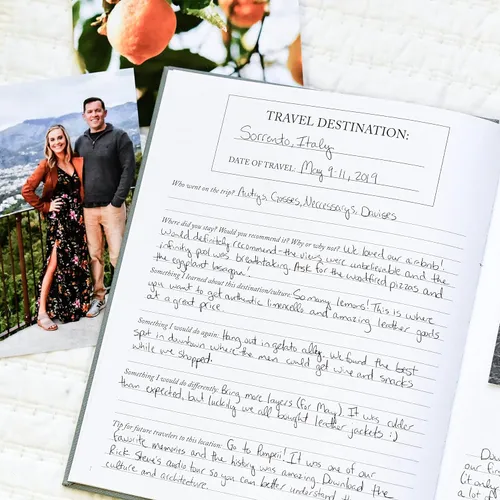 TRAVEL DESTINATION:
Sorrento, Italy
DATE OF TRAVEL: May 9-11, 2019
Who went on the trip? Autrys, Crosses, Neccessarys, Davises
Where did you stay? Would you recommend it? Why or why not? We loved our airbnb!
Would definitely recommend - the views were unbelievable and the
infinity pool was breathtaking. Ask for the woodfired pizzas and
the eggplant lasagna!
Something I learned about this destination/culture: So many lemons! This is where
you want to get authentic limoncello and amazing leather goods
at a great price.
Something I would do again: Hang out in gelato alley. We found the best
spot in downtown where the men could get wine and snacks
while we shopped.
Something I would do differently: Bring more layers (for May). It was colder
than expected, but luckily we all bought leather jackets :)
Tip for future travelers to this location: Go to Pompeii! It was one of our
favorite memories and the history was amazing. Download the
Rick Steve's audio tour so you can better understand the
culture and architecture.